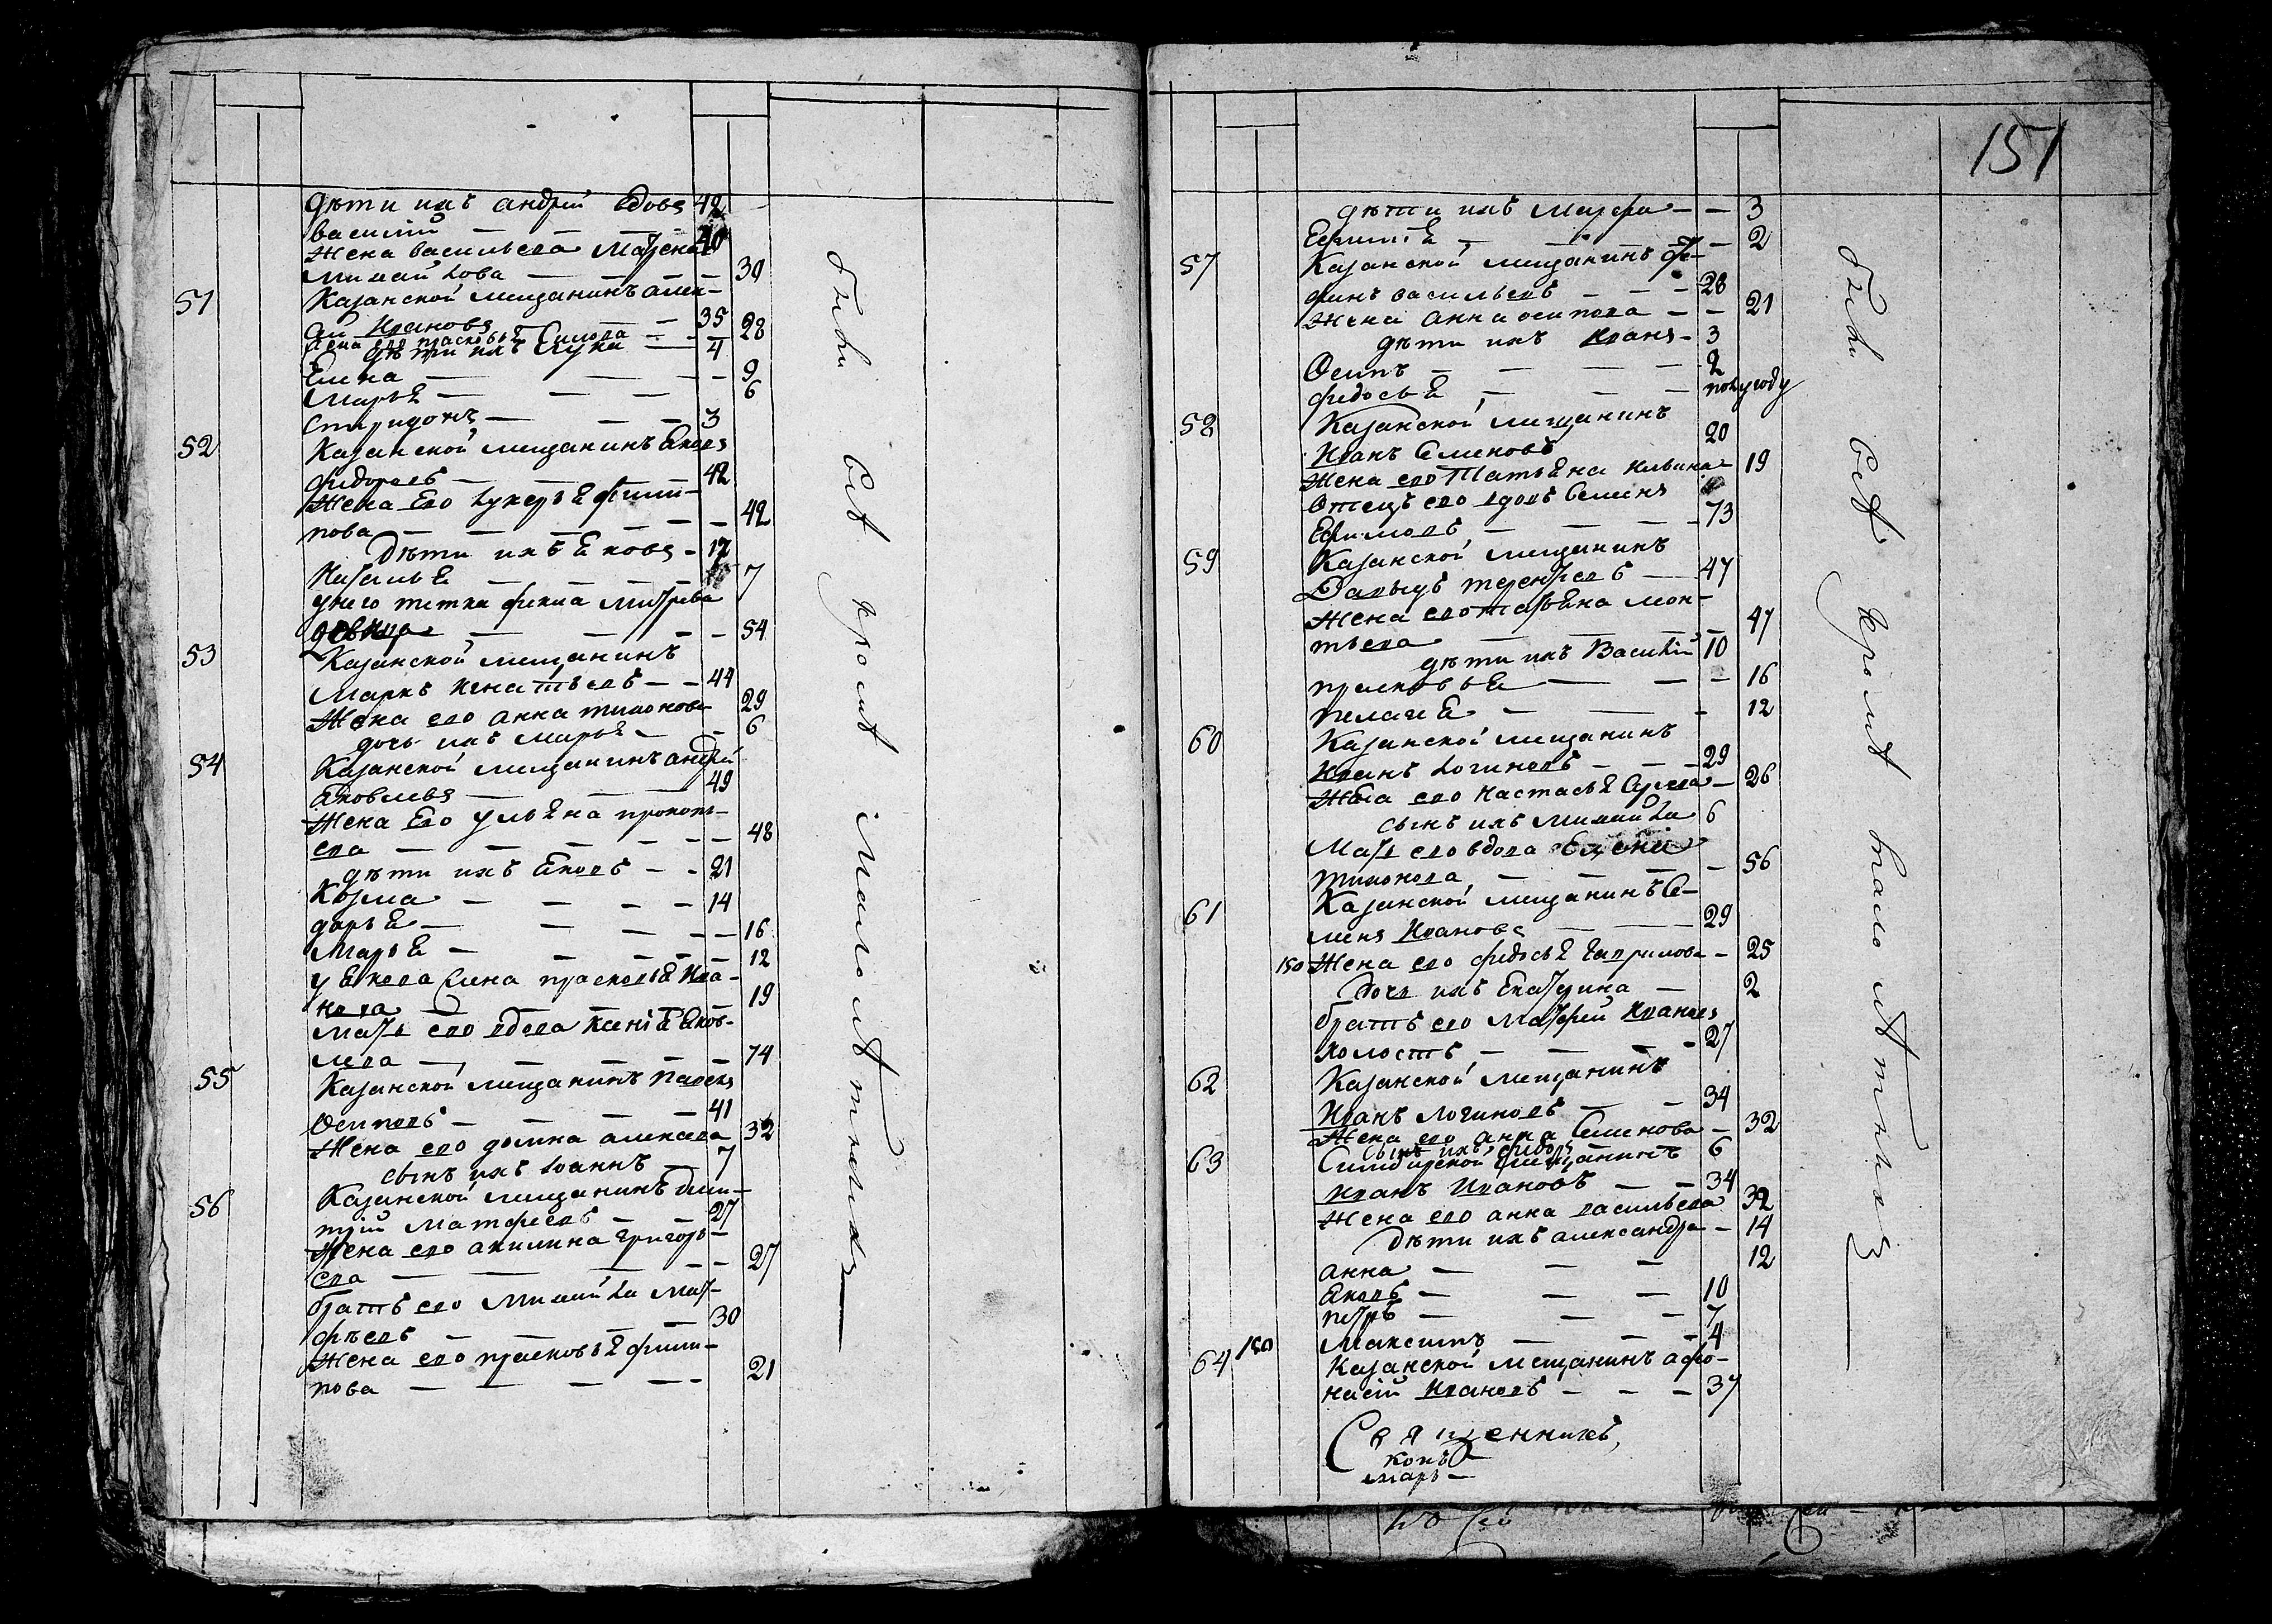 дѣти ихъ андрей вдовъ 42
василий — — — 40
Жена васильева Матрена
михайлова — — — — 30
51 Казанской мещанинъ алек-
ѣй Ивановъ — — 35
Жена его прасковьѣ — — 28
дѣти ихъ Лука — 4
Елена — — — — 9
Марьѣ — — — 6
спиридонъ — — — 3
52 Казанской мещанинъ Ѣковъ
федоровъ — — — 42
Жена Его лукерьѣ филип-
пова — — — — 42
дѣти ихъ Ѣковъ — 12
Натальѣ — — — 7
унего тетка фекла митрева
девица — — — 54
53 Казанской мещанинъ
Маркъ Игнатьевъ — — 44
Жена его анна тимонова 29
дочь ихъ марьѣ — — 6
54 Казанской мещанинъ андрей
Ѣковлевъ — — — 49
Жена Его ульѣна прокопь-
ева — — — — — 48
дѣти ихъ Ѣковъ — — 21
Козма — — — — 14
дарьѣ — — — — 16
Марьѣ — — — — 12
у Ѣкова жена прасковьѣ Ива-
нова — — — — 19
Мать его вдова ксеніѣ Ѣков-
лева — — — — — 74
55 Казанской мещанинъ павелъ
Осиповъ — — — 41
Жена его домна алексева 32
сынъ ихъ іоаннъ — 7
56 Казанской мещанинъ дми-
трій матфеевъ — — 27
Жена его акилина григорь-
ева — — — — — 27
братъ его михайла мат-
фѣевъ — — — — 30
Жена его прасковьѣ филип-
пова — — — — — 21
были всѣ кромѣ і малолѣтныхъ
151
дѣти ихъ Марфа — — 3
Ефиміѣ — — — — 2
57 Казанской мещанинъ фе-
финъ васильевъ — — — 28
Жена анна осипова — — 21
дѣти ихъ Иванъ — 3
Осипъ — — — — 2
федосьѣ — — — полугоду
58 Казанской мещанинъ
Иванъ Семеновъ 20
Жена его Татьѣна Ильина — 19
Отецъ его вдовъ Семенъ
Ефимовъ — — — — 73
59 Казанской мещанинъ
Давыдъ терентьевъ — 47
Жена его татьѣна мон-
тьева — — — — 47
дѣти ихъ Василій 10
прасковьѣ — — — 16
пелагеѣ — — — 12
60 Казанской мещанинъ
Иванъ логиновъ — — — 29
Жена его Настасьѣ — 26
сынъ ихъ михайла 6
Мать его вдова
тимонова — — — — 56
61 Казанской мещанинъ Се-
менъ Ивановъ — — 29
150 Жена его федосьѣ гаврилова — 25
дочь ихъ Екатерина — 2
братъ его Матфей Ивановъ
холостъ — — — — 27
62 Казанской мещанинъ
Иванъ логиновъ — — 34
Жена его анна Семенова — 32
сынъ ихъ федоръ 6
63 Симбирской мещанинъ
Иванъ Ивановъ — — 34
Жена его анна васильева 32
дѣти ихъ александра — 14
анна — — — 12
Ѣковъ — — — 10
петръ — — — 7
Максимъ — — — 4
64 150 Казанской мещанинъ афо-
насій Ивановъ — — — 37
были всѣ кромѣ малолѣтныхъ
Священникъ